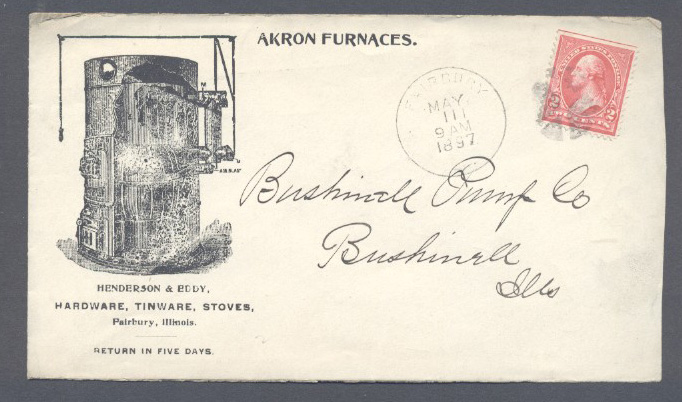 AKRON FURNACES.
FAIRBURY
MAY
11
9 AM
1897
2
TWO CENTS
2
Bushnell Pump Co
Bushnell
Ills
HENDERSON & EDDY,
HARDWARE, TINWARE, STOVES,
Fairbury, Illinois.
RETURN IN FIVE DAYS.